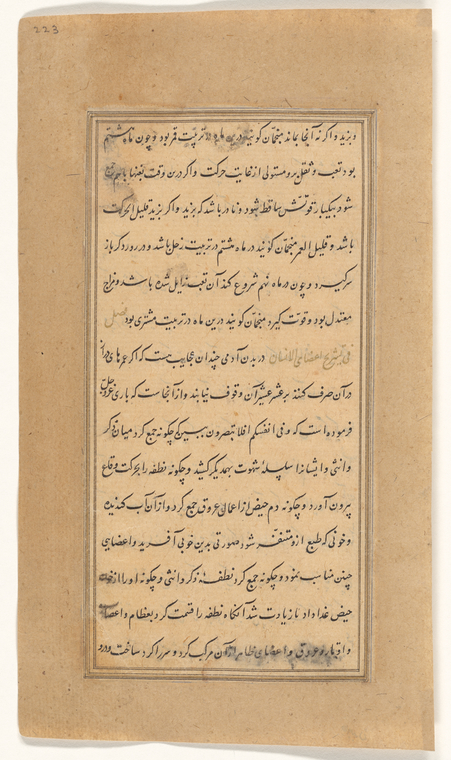 223
بزید و اگر نه آنجا بماند منجمان کویند درین ماه در تربیت قمر بود و چون ماه هشتم
بود تعب و ثقل برو مستولی از غایت حرکت و اگر درین وقت بغتها باهم جمع
شود بیکبار قوتش ساقط شود و نادر باشد که بزید و اگر بزید قلیل الحرکت
باشد و قلیل العمر منجمان کویند در ماه هشتم در تربیت زحل باشد و در رو در کر باز
سر گیرد و چون در ماه نهم شروع کند آن تعب زایل شده باشد و مزاج
معتدل بود و قوت کیرد منجمان کویند درین ماه در تربیت مشتری بود فصل
فی تشریح اعضاء الانسان در بدن آدمی چندان عجایب هست که اگر عمرهای دراز
در آن صرف کنند بر عشر عشیر آن وقوف نیابند و از آنجاست که باری عز و جل
فرموده است که و فی انفسکم افلا تبصرون ببین که چگونه جمع کرد میان ذکر
و انثی و ایشانرا سلسلهٔ شهوت بهمدیگر کشید و چگونه نطفه را بحرکت وقاع
بیرون آورد و چگونه دم حیض از اعماق عروق جمع کرد و از آن آب کندیده
و خونی که طبع ازو متنفر شود صورتی بدین خوبی آفرید و اعضایی
چنین مناسب بنمود و چگونه جمع کرد نطفهٔ ذکر و انثی و چگونه او را از خون
حیض غذا داد تا زیادت شد آنگاه نطفه را قسمت کرد بعظام و اعصاب
و اوتار و عروق و اعضای ظاهر از آن مرکب کرد و سر را گرد ساخت و درو